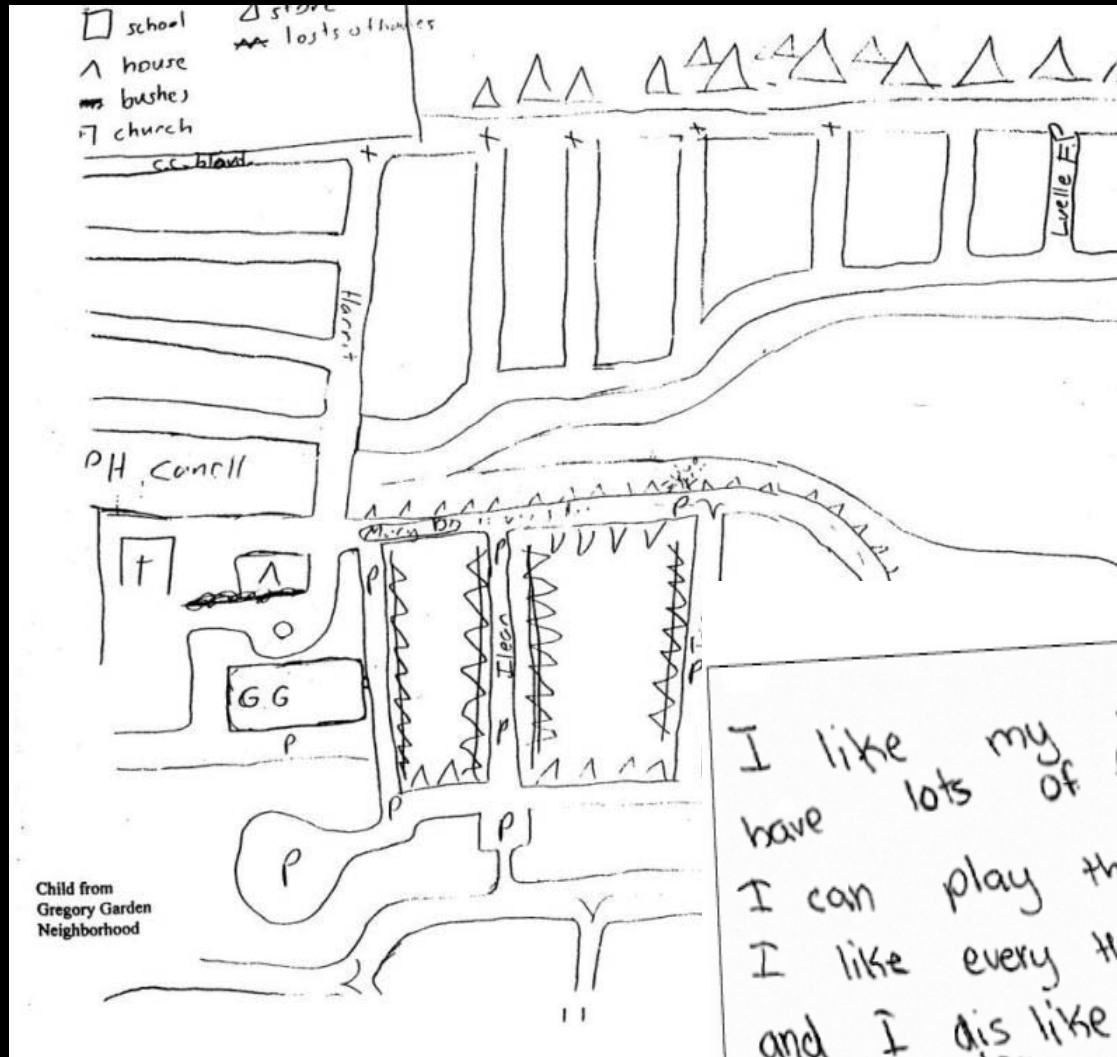 school
store
losts of houses
house
bushes
church
c.c. blavd.
Harrit
Luelle
P.H. Conell
Mary Dr
P
P
P
Ilean
G.G
P
P
P
P
P
P
Child from
Gregory Garden
Neighborhood
I like my
have lots of
I can play th
I like every th
and I dis like